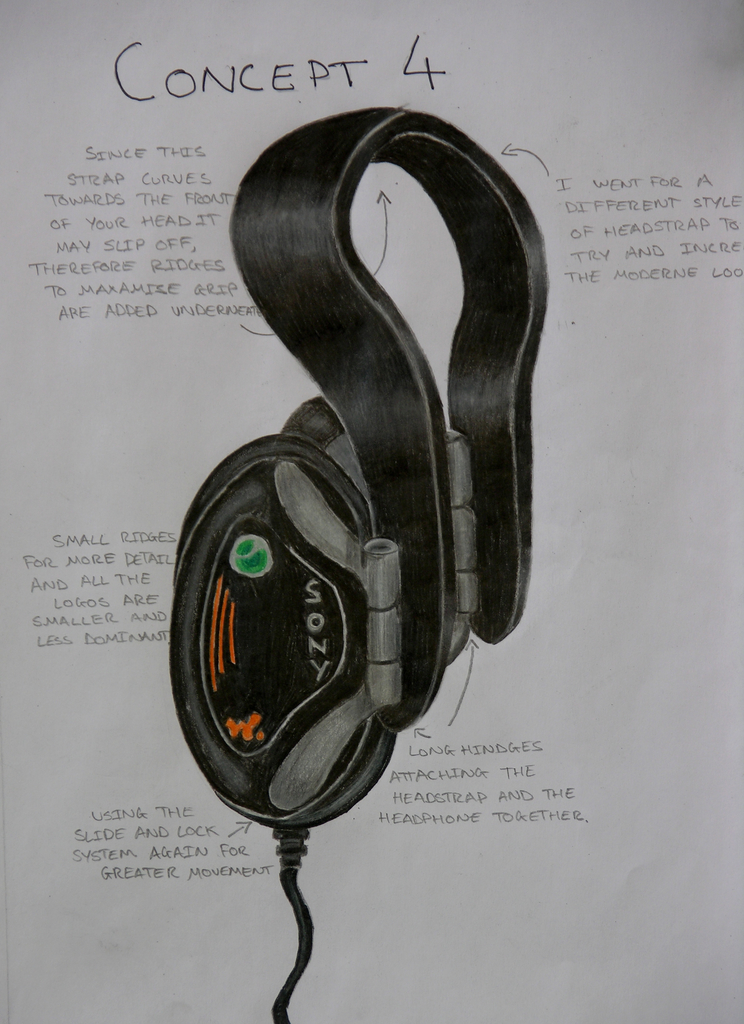 CONCEPT 4
SINCE THIS
STRAP CURVES
TOWARDS THE FRONT
OF YOUR HEAD IT
MAY SLIP OFF,
THEREFORE RIDGES
TO MAXAMISE GRIP
ARE ADDED UNDERNEATH
I WENT FOR A
DIFFERENT STYLE
OF HEADSTRAP TO
TRY AND INCRE
THE MODERNE LOO
SMALL RIDGES
FOR MORE DETAIL
AND ALL THE
LOGOS ARE
SMALLER AND
LESS DOMINANT
SONY
W.
LONG HINDGES
ATTACHING THE
HEADSTRAP AND THE
HEADPHONE TOGETHER.
USING THE
SLIDE AND LOCK
SYSTEM AGAIN FOR
GREATER MOVEMENT